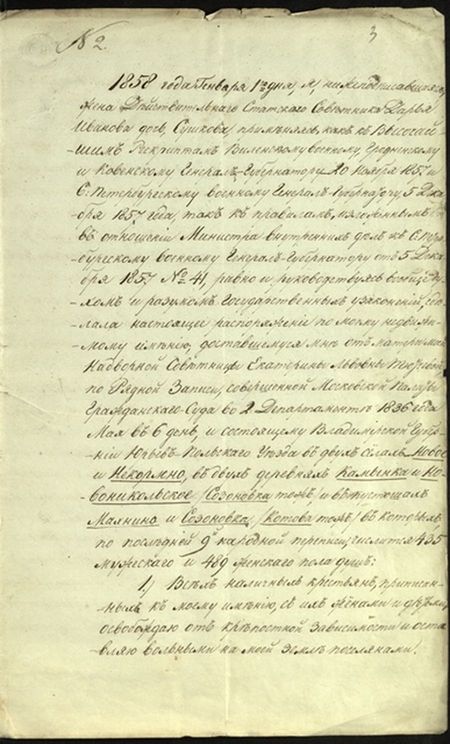 № 2.
3
1858 года Генваря 1го дня, я, нижеподписавшаяся,
жена Действительнаго Статскаго Советника Дарья
Иванова дочь, Сушкова, применяясь, какъ къ Высочай-
-шимъ Рескриптамъ Виленскому военному, Гродненскому
и Ковенскому Генералъ-Губернатору 20 Ноября 1857 и
С. Петербургскому военному Генералъ-Губернатору 5 Дека-
-бря 1857 года, такъ къ правиламъ, изложеннымъ
въ отношеніи Министра внутреннихъ делъ къ С. Петер-
бургскому военному Генералъ-Губернатору отъ 5 Дека-
-бря 1857 № 41, равно и руководствуясь вообще ду-
-хомъ и разумомъ Государственныхъ узаконеній, сде-
-лала настоящее распоряженіе по моему недвижи-
-мому именію, доставшемуся мне отъ матери моей
Надворной Советницы Екатерины Львовны Тютчевой
по Рядной Записи, совершенной Московской Палаты
Гражданскаго Суда во 2 Департаменте 1836 года
Мая въ 6 день, и состоящему Владимірской Губер-
-ніи Юрьевъ-Польскаго Уезда въ двухъ селахъ Новое
и Некормно, въ двухъ деревняхъ Калинка и Но-
-воникольское /Созоновка тожъ/ и въ пустошахъ
Малнино и Созоновка, /Котова тожъ/ въ которыхъ
по последней 9й народной переписи, числится 435
мужескаго и 489 женскаго пола душъ:
1.) Всехъ наличныхъ крестьянъ, приписан-
-ныхъ къ моему именію, съ ихъ женами и детьми,
освобождаю отъ крепостной зависимости и оста-
-вляю вольными на моей земле поселянами.